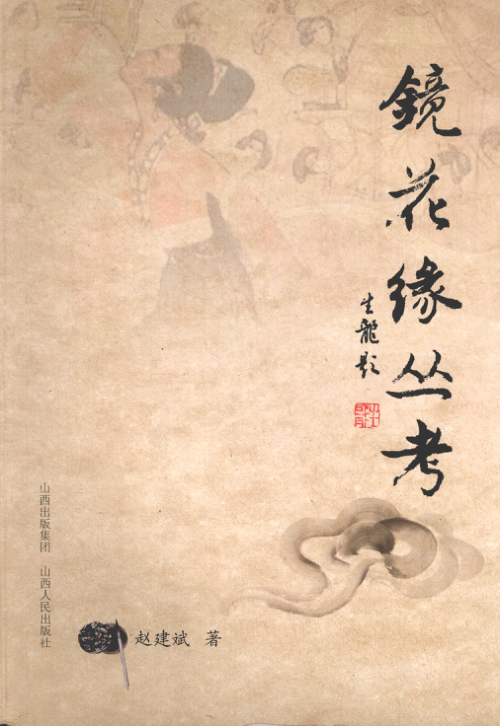 鏡花缘丛考
生龍题
山西出版集团 山西人民出版社
赵建斌 著